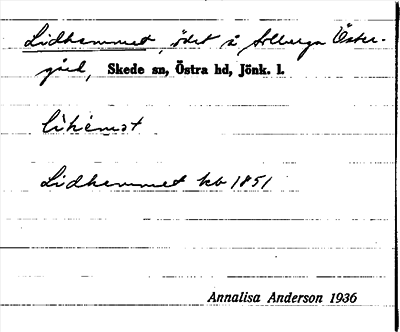 Lidhemmet, ödet å Solberga Öster-
gård, Skede sn, Östra hd, Jönk. l.
Lidhemmet kb 1851
Annalisa Anderson 1936